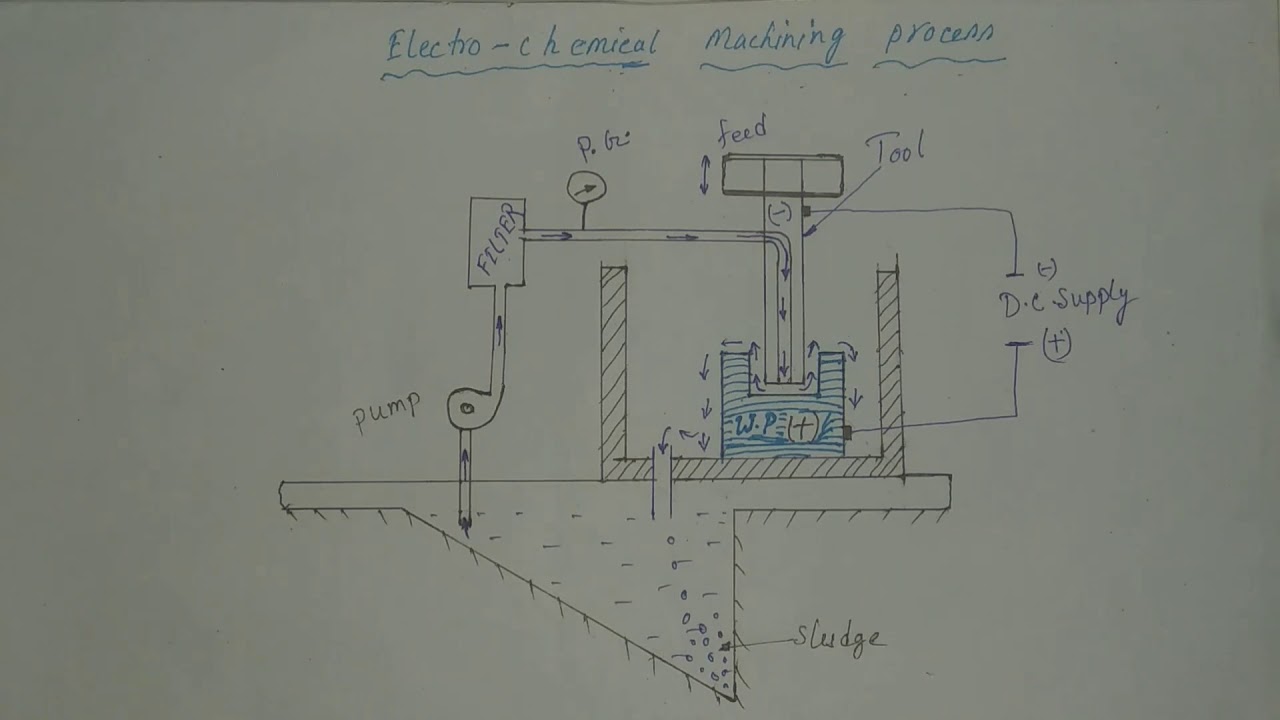 Electro-chemical Machining process
feed
P.G.
Tool
FILTER
(-)
(-)
D.C Supply
(+)
pump
W.P (+)
Sludge